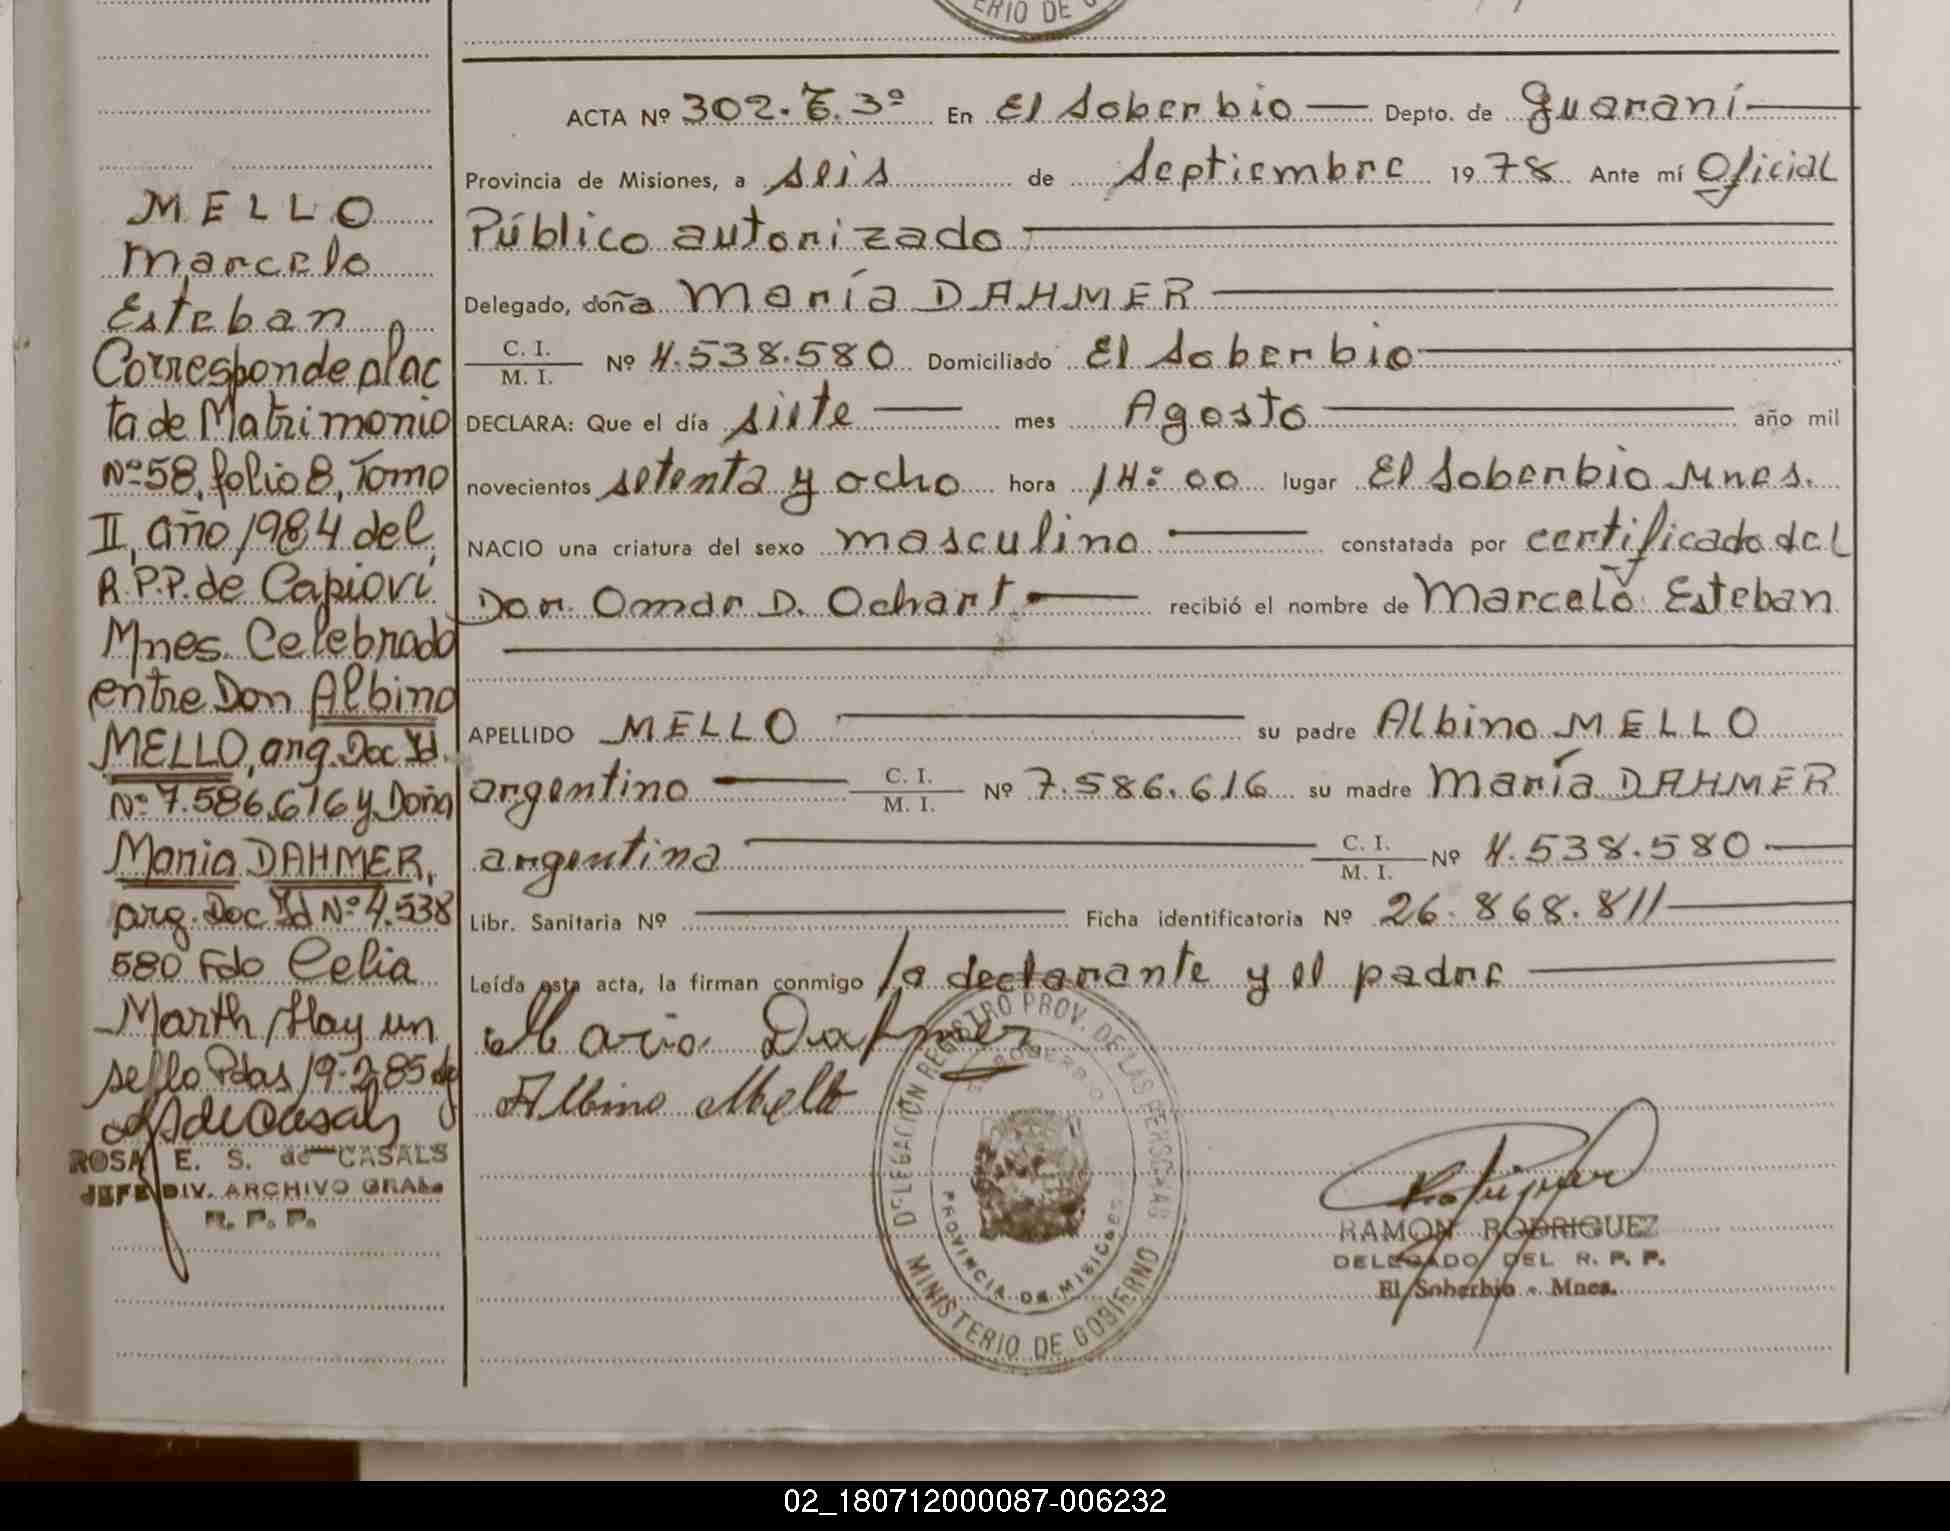 ERIO DE G
ACTA Nº 302. T. 3º En El Soberbio Depto. de Guaraní
Provincia de Misiones, a seis de Septiembre 1978 Ante mí Oficial
Público autorizado
Delegado, doña María DAHMER
C. I.
M. I. Nº 4.538.580 Domiciliado El Soberbio
DECLARA: Que el día siete mes Agosto año mil
novecientos setenta y ocho hora 14:00 lugar El Soberbio Mnes.
NACIO una criatura del sexo masculino constatada por certificado del
Dor. Omar D. Ochart recibió el nombre de Marcelo Esteban
APELLIDO MELLO su padre Albino MELLO
argentino C. I. M. I. Nº 7.586.616 su madre María DAHMER
argentina C. I. M. I. Nº 4.538.580
Libr. Sanitaria Nº Ficha identificatoria Nº 26.868.811
Leída esta acta, la firman conmigo la declarante y el padre
Maria Dahmer
Albino Mello
DELEGACIÓN REGISTRO PROV. DE LAS PERSONAS
EL SOBERBIO
PROVINCIA DE MISIONES
MINISTERIO DE GOBIERNO
RAMON RODRIGUEZ
DELEGADO DEL R. P. P.
El Soberbio - Mnes.
MELLO
Marcelo
Esteban
Corresponde al ac
ta de Matrimonio
Nº 58, folio 8, Tomo
II, año 1984 del
R.P.P. de Capioví
Mnes. Celebrado
entre Don Albino
MELLO, arg. Doc Id
Nº 7.586.616 y Doña
Maria DAHMER,
arg. Doc Id Nº 4.538
580 Fdo Celia
Marth, Hay un
sello Pdas 19-2-85
ROSA E. S. de CASALS
JEFE DIV. ARCHIVO GRAL.
R. P. P.
02_180712000087-006232